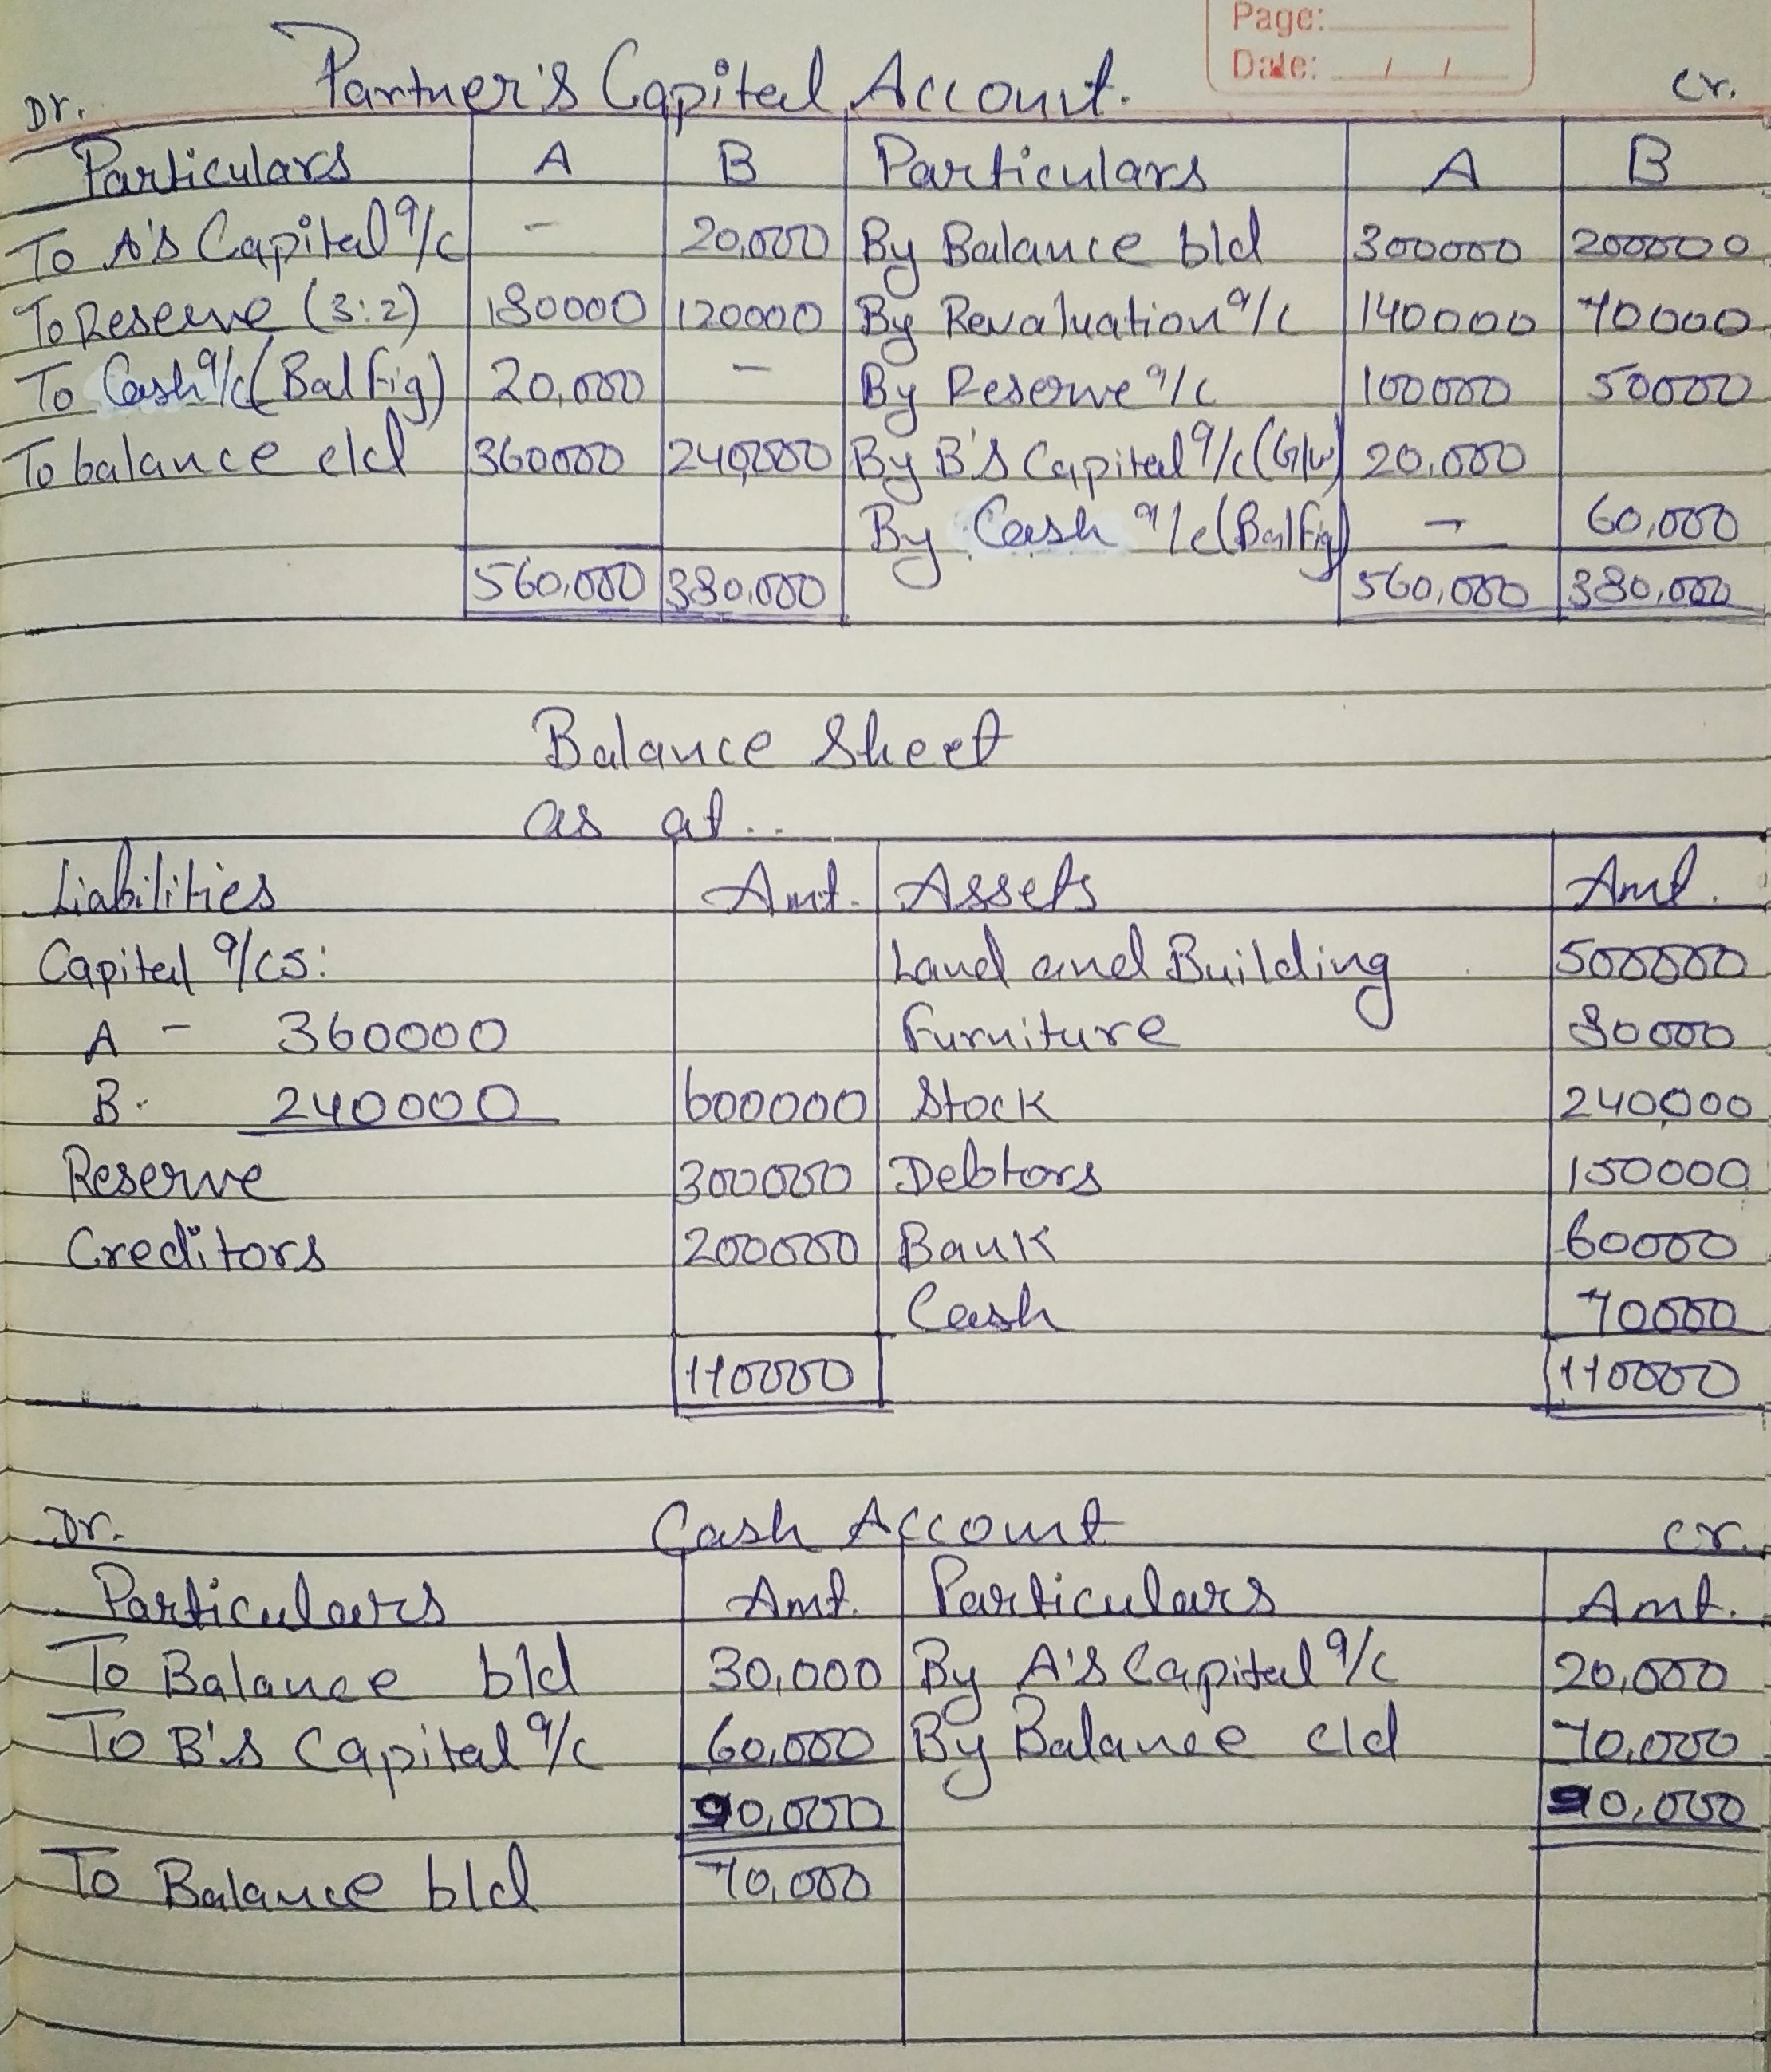 Page:
Date: / /
Dr. Partner's Capital Account. Cr.
Particulars A B Particulars A B
To A's Capital a/c - 20,000 By Balance b/d 300000 200000
To Reserve (3:2) 180000 120000 By Revaluation a/c 140000 70000
To Cash a/c (Bal Fig) 20,000 - By Reserve a/c 100000 50000
To balance c/d 360000 240,000 By B's Capital a/c (G/w) 20,000
By Cash a/c (Bal Fig) - 60,000
560,000 380,000 560,000 380,000
Balance Sheet
as at..
Liabilities Amt. Assets Amt.
Capital a/cs: Land and Building 500000
A - 360000 Furniture 80000
B. 240000 600000 Stock 240,000
Reserve 300000 Debtors 150000
Creditors 200000 Bank 60000
Cash 70000
110000 110000
Dr. Cash Account Cr.
Particulars Amt. Particulars Amt.
To Balance b/d 30,000 By A's Capital a/c 20,000
To B's Capital a/c 60,000 By Balance c/d 70,000
90,000 90,000
To Balance b/d 70,000